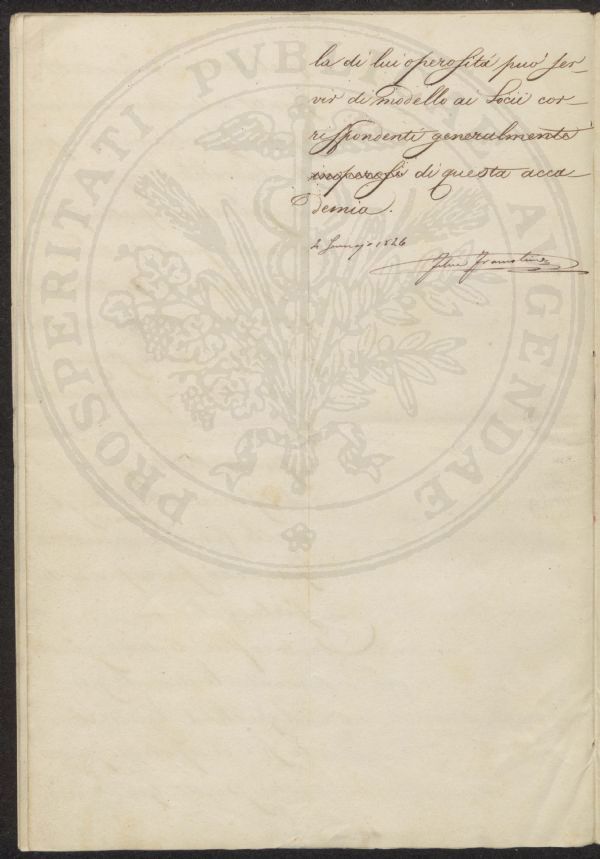 la di lui operosità può ser-
vir di modello ai Socii cor-
rispondenti generalmente
inoperosi di questa acca-
demia.
2 1826
PROSPERITATI PVBLICAE AVGENDAE